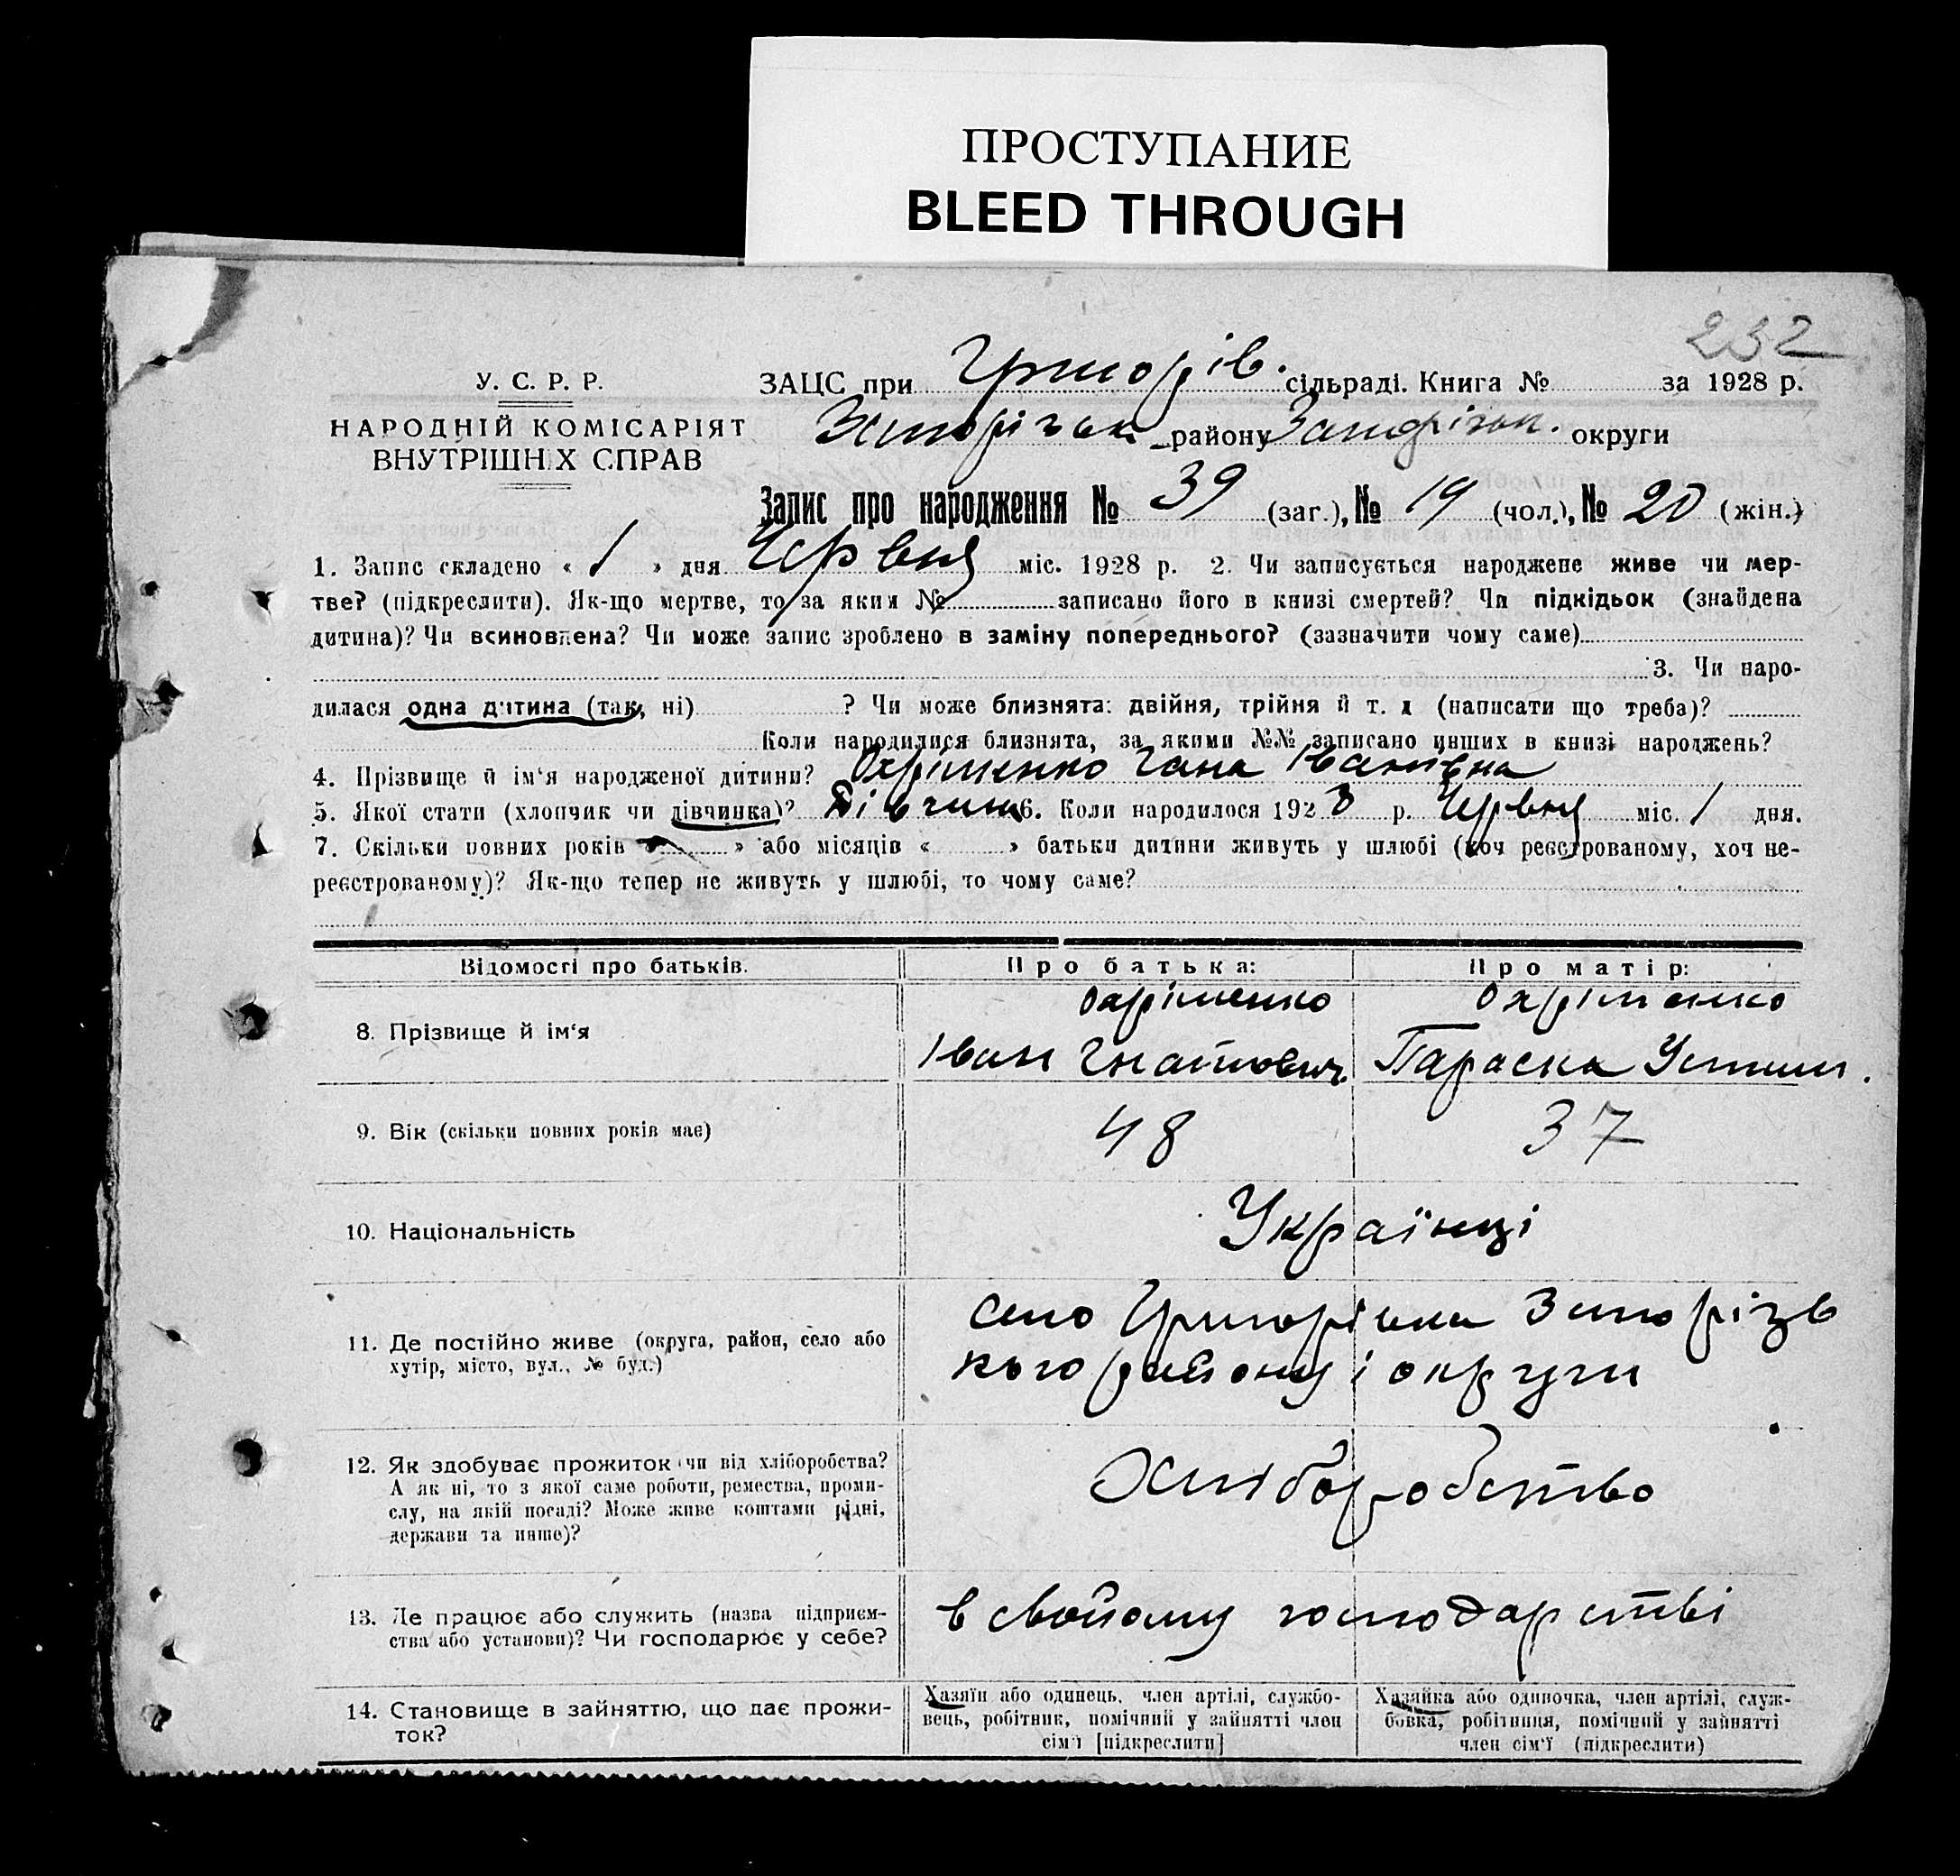 ПРОСТУПАНИЕ
BLEED THROUGH
232
У. С. Р. Р.
НАРОДНІЙ КОМІСАРІЯТ
ВНУТРІШНІХ СПРАВ
ЗАЦС при Григорів. сільраді. Книга № за 1928 р.
Запорізьк. району Запорізьк. округи
Запис про народження № 39 (заг.), № 19 (чол.), № 20 (жін.)
1. Запис складено « 1 » дня Червня міс. 1928 р. 2. Чи записується народжене живе чи мер-
тве? (підкреслити). Як-що мертве, то за яким № записано його в книзі смертей? Чи підкідьок (знайдена
дитина)? Чи всиновлена? Чи може запис зроблено в заміну попереднього? (зазначити чому саме)
3. Чи наро-
дилася одна дитина (так, ні) ? Чи може близнята: двійня, трійня й т. д (написати що треба)?
Коли народилися близнята, за якими №№ записано инших в книзі народжень?
4. Прізвище й ім‘я народженої дитини? Охріменко Гана Іванівна
5. Якої стати (хлопчик чи дівчинка)? Дівчина 6. Коли народилося 1928 р. Червня міс. 1 дня.
7. Скільки повних років « » або місяців « » батьки дитини живуть у шлюбі (хоч реєстрованому, хоч не-
реєстрованому)? Як-що тепер не живуть у шлюбі, то чому саме?
Відомості про батьків. Про батька: Про матір:
8. Прізвище й ім‘я
Охріменко
Іван Гнатович.
Охріменко
Параска Устим.
9. Вік (скільки повних років має) 48 37
10. Національність Українці
11. Де постійно живе (округа, район, село або
хутір, місто, вул., № буд.)
село Григорівка Запорізь
кого району і округи
12. Як здобуває прожиток чи від хліборобства?
А як ні, то з якої саме роботи, ремества, проми-
слу, на якій посаді? Може живе коштами рідні,
держави та инше)?
Хліборобство
13. Де працює або служить (назва підприєм-
ства або установи)? Чи господарює у себе?
в свойому господарстві
14. Становище в зайняттю, що дає прожи-
ток?
Хазяїн або одинець, член артілі, службо-
вець, робітник, помічний у зайнятті член
сім‘ї [підкреслити]
Хазяйка або одиночка, член артілі, служ-
бовка, робітниця, помічний у зайнятті
член сім‘ї (підкреслити)